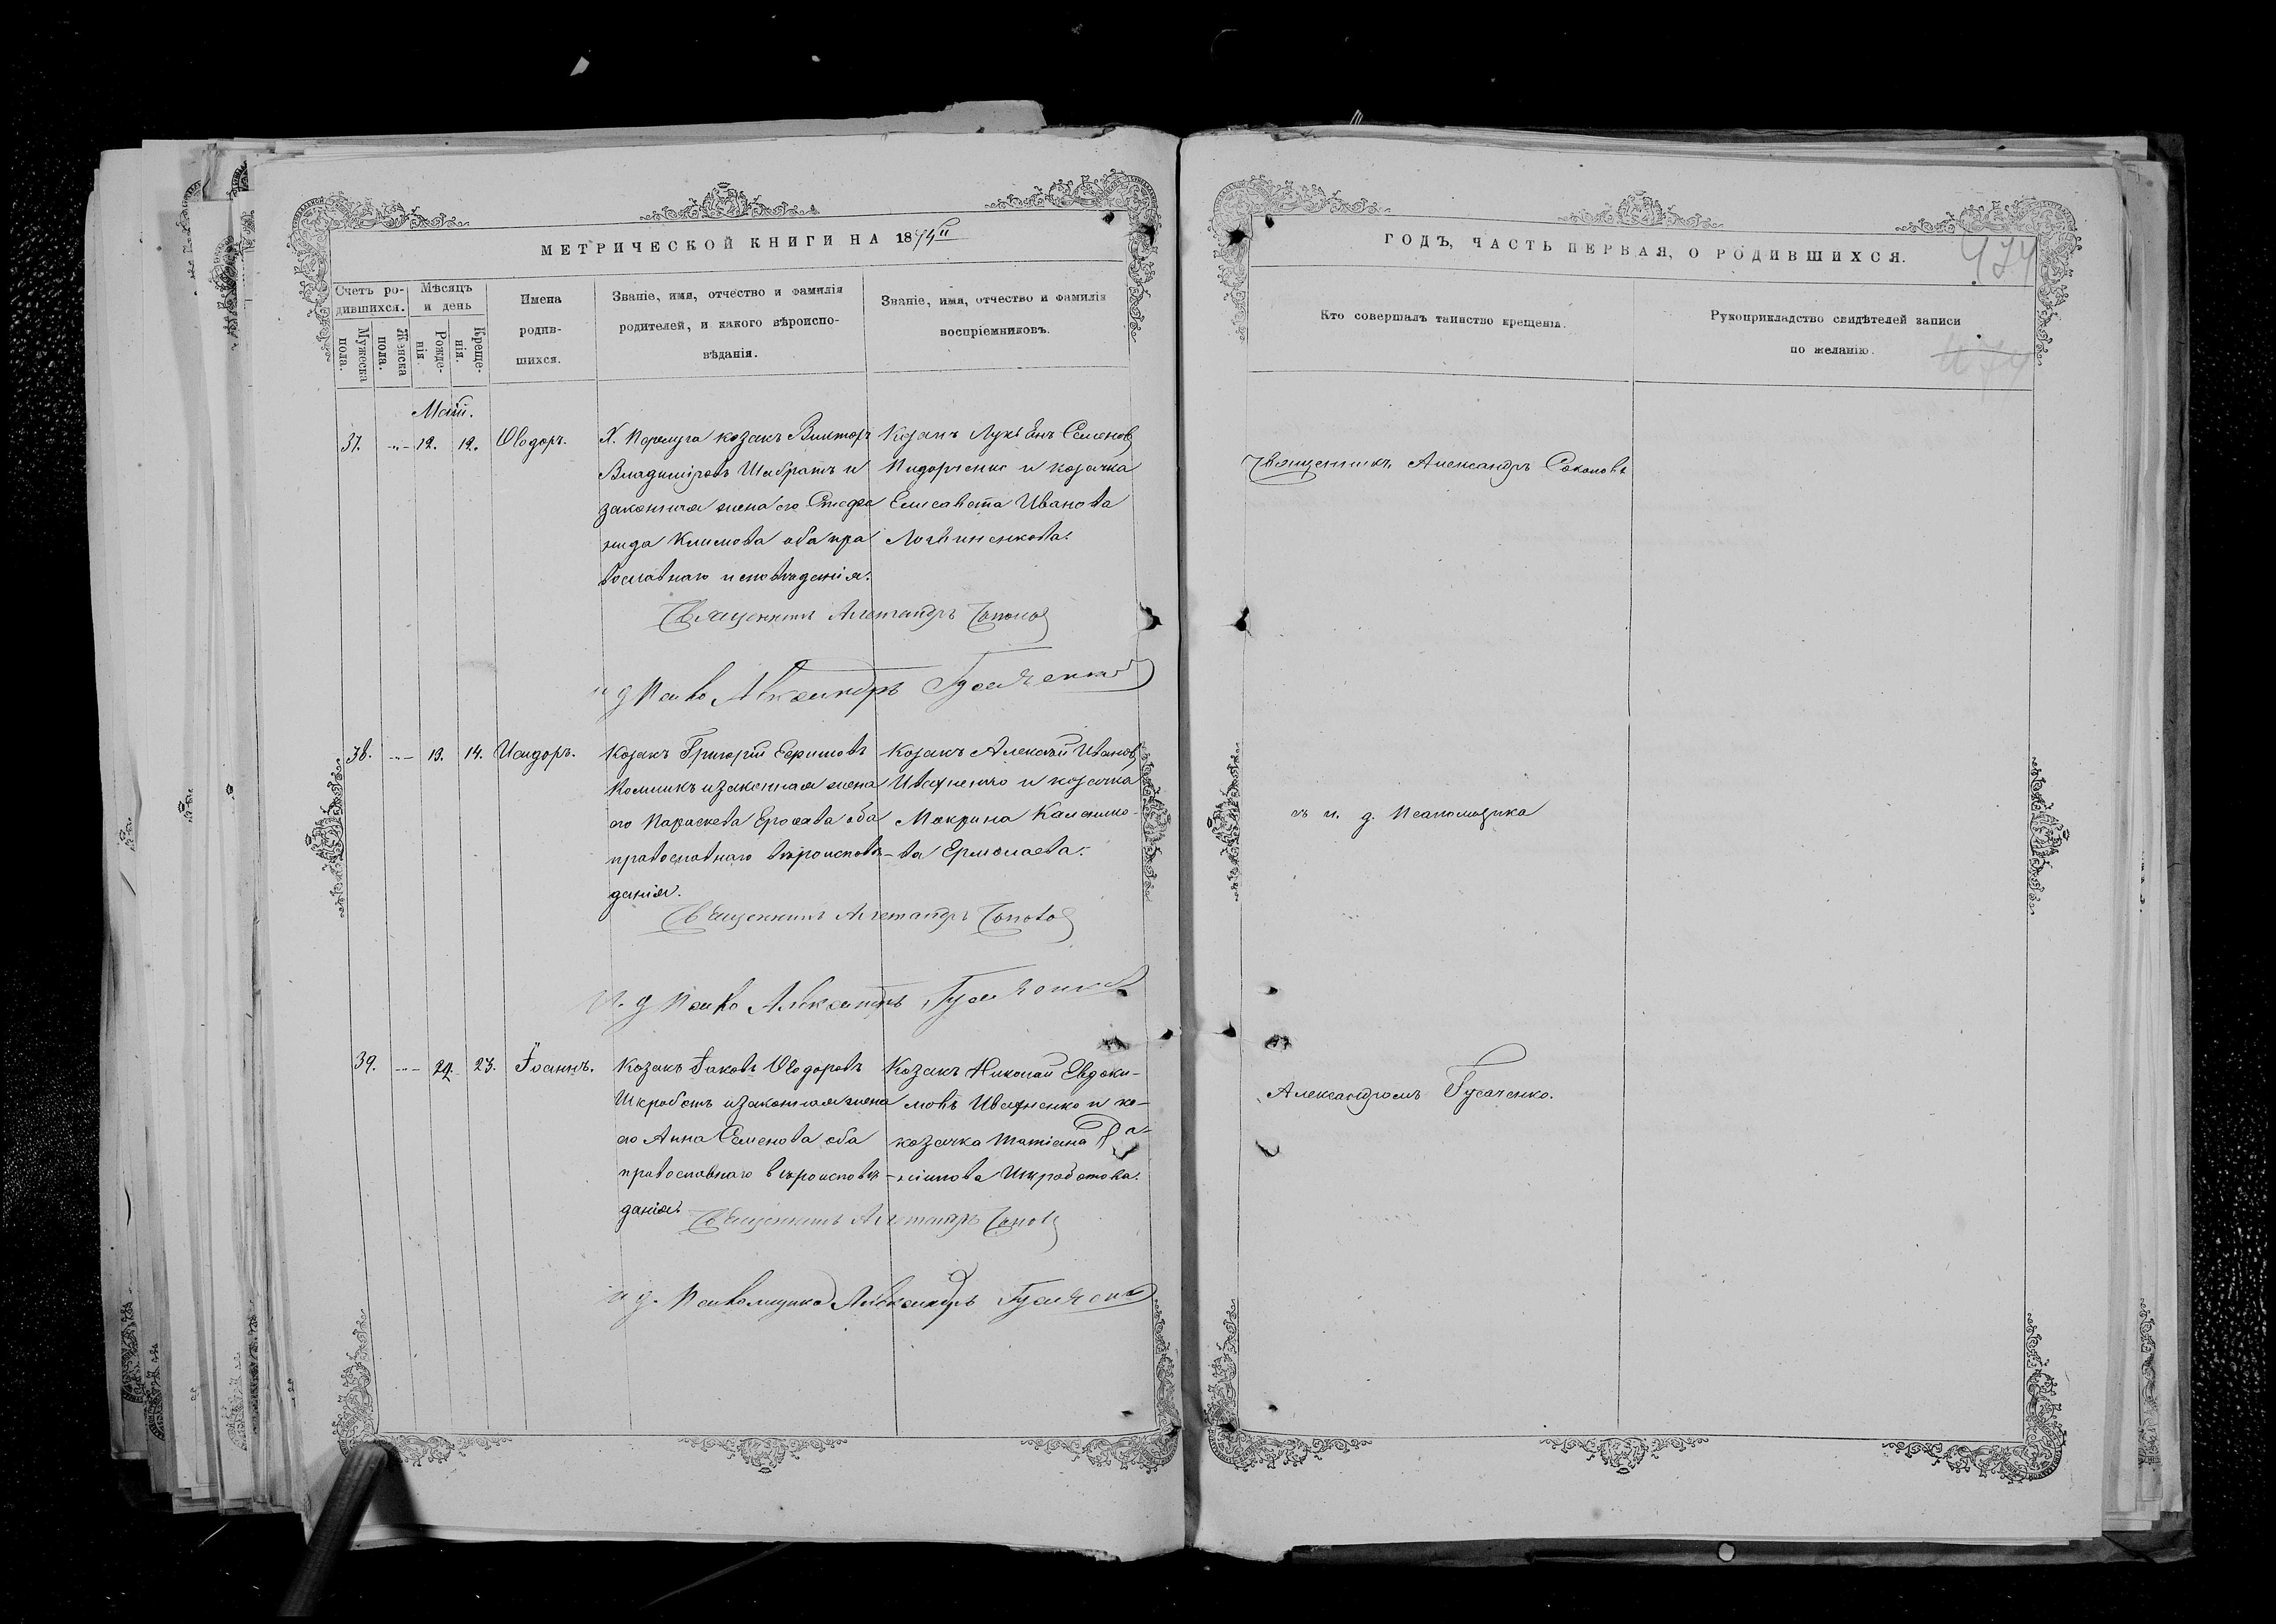 МЕТРИЧЕСКОЙ КНИГИ НА 1874й
Счетъ родившихся.
Мужеска пола.
Женска пола.
Мѣсяцъ и день
Рожденія.
Крещенія.
Имена родившихся.
Званіе, имя, отчество и фамилія родителей, и какого вѣроисповѣданія.
Званіе, имя, отчество и фамилія воспріемниковъ.
Май.
37. -"- 12. 12. Ѳеодоръ.
козакъ Викторъ
Владиміровъ и
законная жена его Стефа
нида Климова оба пра
вославнаго исповѣданія.
Козакъ Лукіанъ Семеновъ
Сидорченко и козачка
Елисавета Иванова
Логвиненкова.
Священникъ Александръ Соколовъ
и д Псало Александръ Гусаченко
38. -"- 13. 14. Исидоръ.
Козакъ Григорій Ефимовъ
Комликъ и законная жена
его Параскева оба
православнаго вѣроисповѣ-
данія.
Козакъ Алексѣй Ивановъ
Ивахненко и козачка
Макрина
ва Ермолаева.
Священникъ Александръ Соколовъ
И. д Псало Александръ Гусаченко
39. -"- 22. 23. Іоаннъ.
Козакъ Іаковъ Ѳеодоровъ
Шкроботъ и законная жена
его Анна Семенова оба
православнаго вѣроисповѣ-
данія.
Козакъ Николай Евдоки-
мовъ Ивахненко и ко-
козачка Татіана Да-
ніилова Шкроботова.
Священникъ Александръ Соколовъ
и д. Псаломщика Александръ Гусаченко
ГОДЪ, ЧАСТЬ ПЕРВАЯ, О РОДИВШИХСЯ.
474
Кто совершалъ таинство крещенія.
Рукоприкладство свидѣтелей записи
по желанію.
474
Священникъ Александръ Соколовъ
съ и. д. Псаломщика
Александромъ Гусаченко.